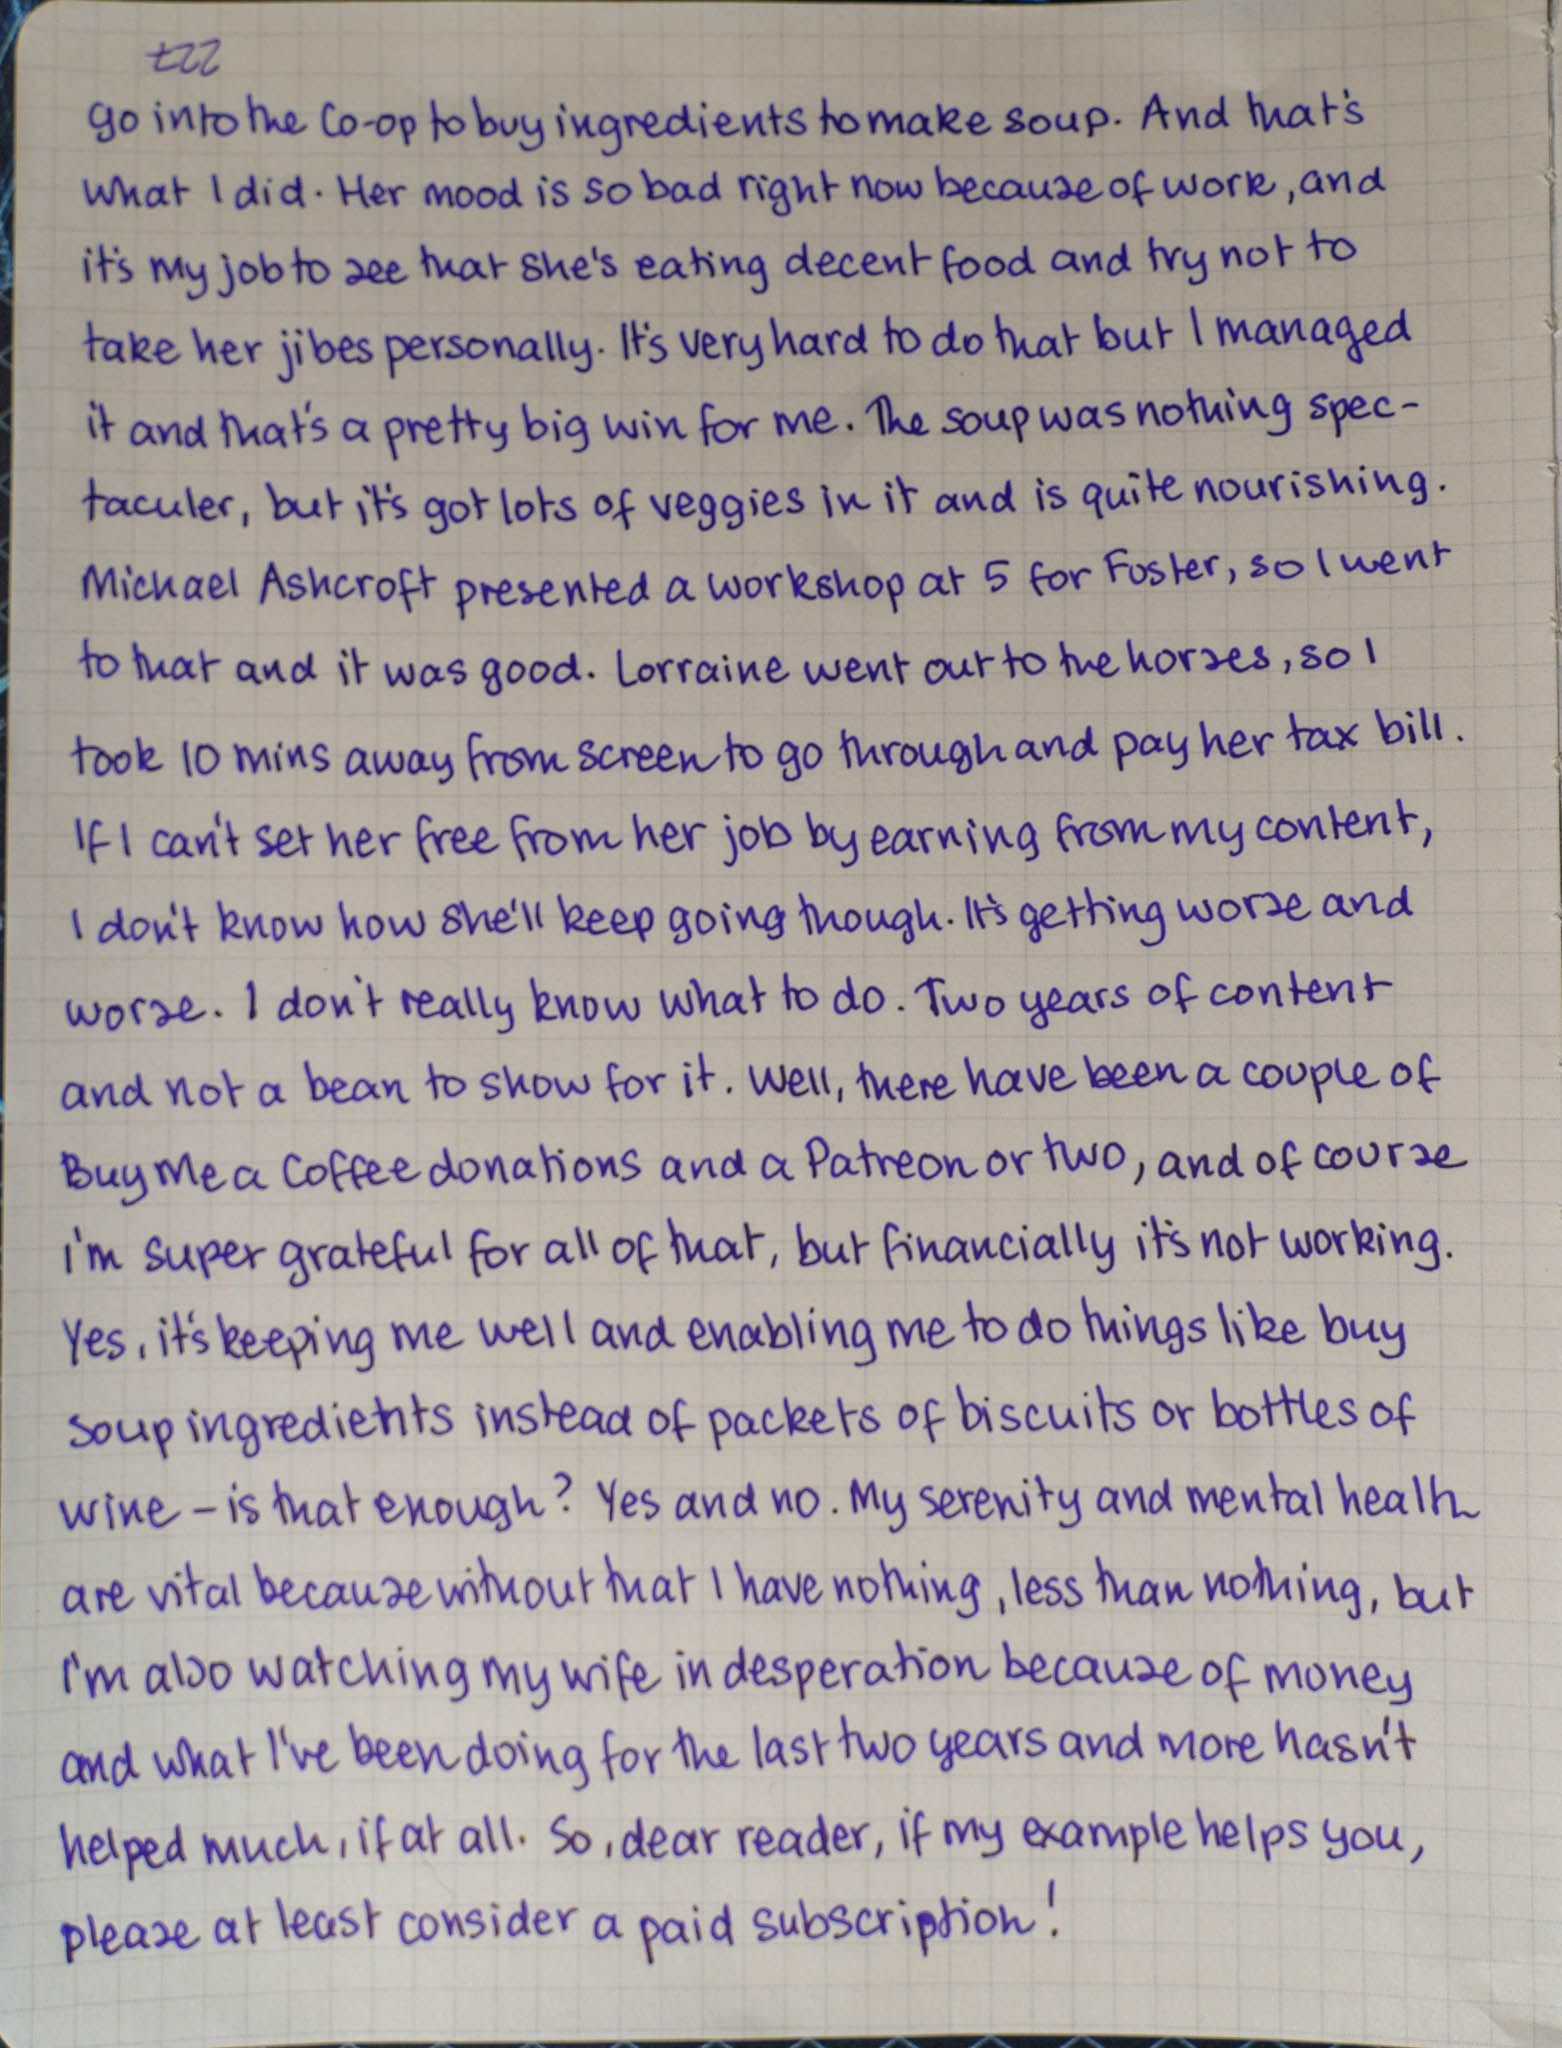 222
go into the Co-op to buy ingredients to make soup. And that's
what I did. Her mood is so bad right now because of work, and
it's my job to see that she's eating decent food and try not to
take her jibes personally. It's very hard to do that but I managed
it and that's a pretty big win for me. The soup was nothing spec-
taculer, but it's got lots of veggies in it and is quite nourishing.
Michael Ashcroft presented a workshop at 5 for Foster, so I went
to that and it was good. Lorraine went out to the horses, so I
took 10 mins away from screen to go through and pay her tax bill.
If I can't set her free from her job by earning from my content,
I don't know how she'll keep going though. It's getting worse and
worse. I don't really know what to do. Two years of content
and not a bean to show for it. Well, there have been a couple of
Buy Me a Coffee donations and a Patreon or two, and of course
I'm super grateful for all of that, but financially it's not working.
Yes, it's keeping me well and enabling me to do things like buy
soup ingredients instead of packets of biscuits or bottles of
wine – is that enough? Yes and no. My serenity and mental health
are vital because without that I have nothing, less than nothing, but
I'm also watching my wife in desperation because of money
and what I've been doing for the last two years and more hasn't
helped much, if at all. So, dear reader, if my example helps you,
please at least consider a paid subscription!